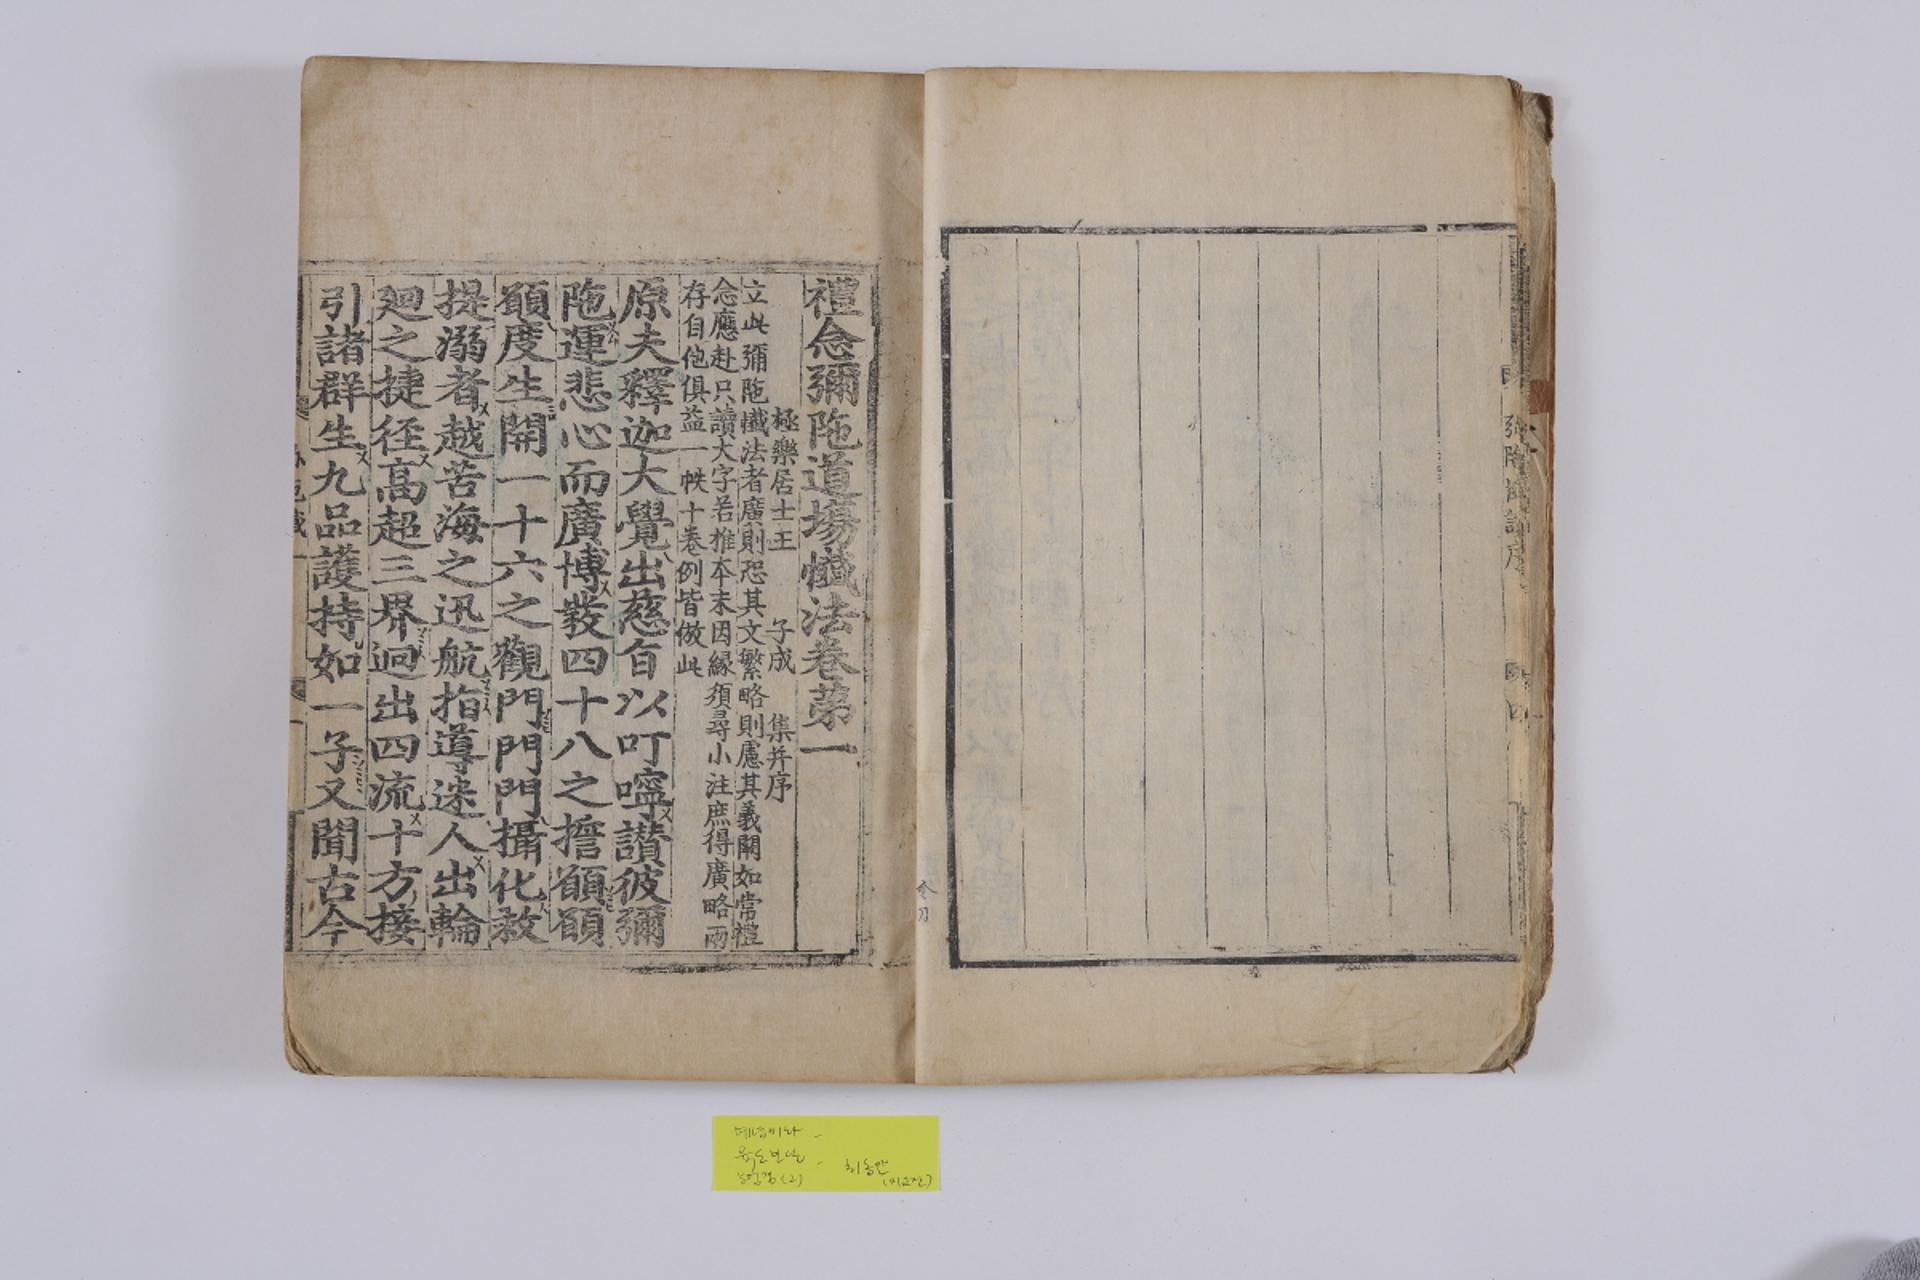 禮念彌陁道場懺法卷苐一
極樂居士王 子成 集并序
立此彌陁懺法者廣則恐其文繁略則慮其義闕如常禮
念應赴只讀大字若推本末因縁須尋小注庶得廣略兩
存自他俱益一帙十卷例皆倣此
原夫釋迦大覺出慈旨以叮嚀讃彼彌
陁運悲心而廣博發四十八之擔願願
願度生開一十六之觀門門門攝化救
提溺者越苦海之迅航指導迷人出輪
廻之捷径高超三界迥出四流十方接
引諸群生九品護持如一子又聞古今